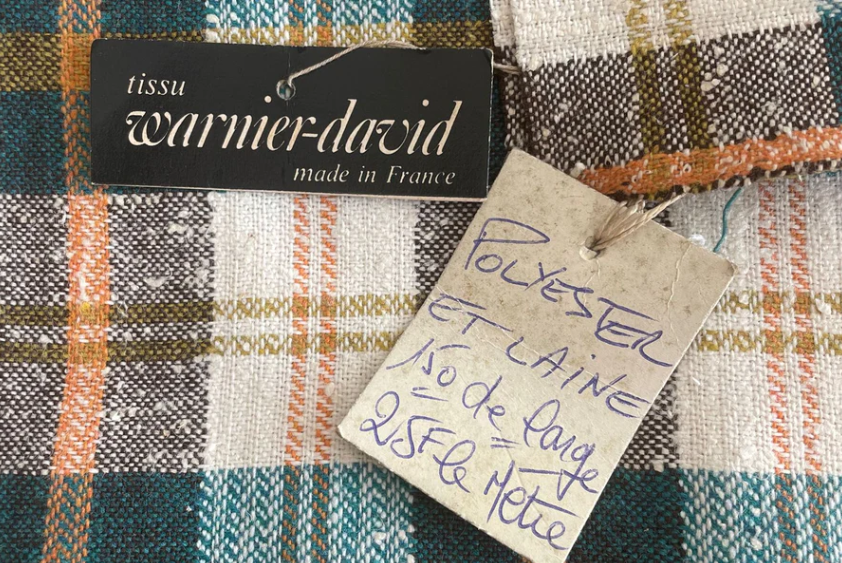 tissu
warnier-david
made in France
POLYESTER
ET LAINE
150 de large
25F le Mètre